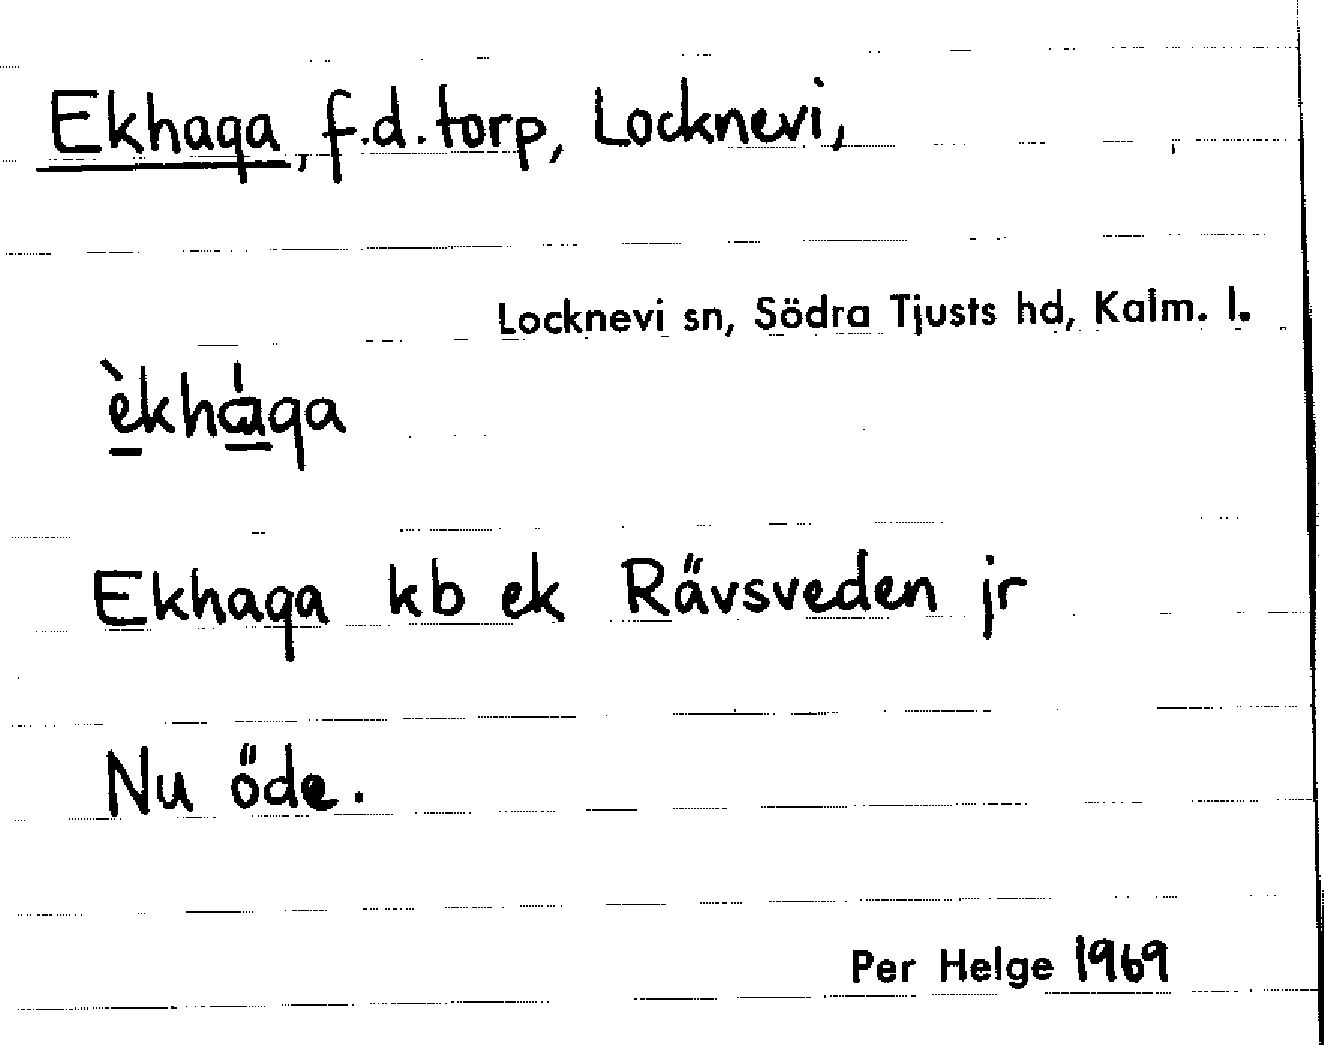 Ekhaga, f.d. torp, Locknevi,
Locknevi sn, Södra Tjusts hd, Kalm. l.
èkhɑ̀ga
Ekhaga kb ek Rävsveden jr
Nu öde.
Per Helge 1969